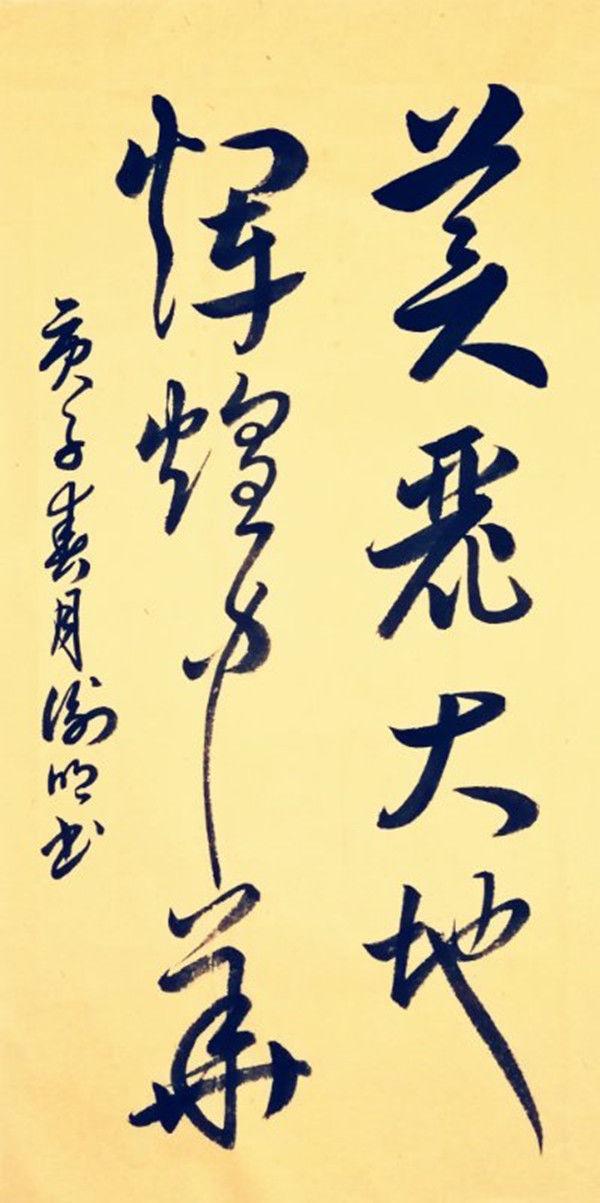 美丽大地
辉煌中华
庚子春月 明书